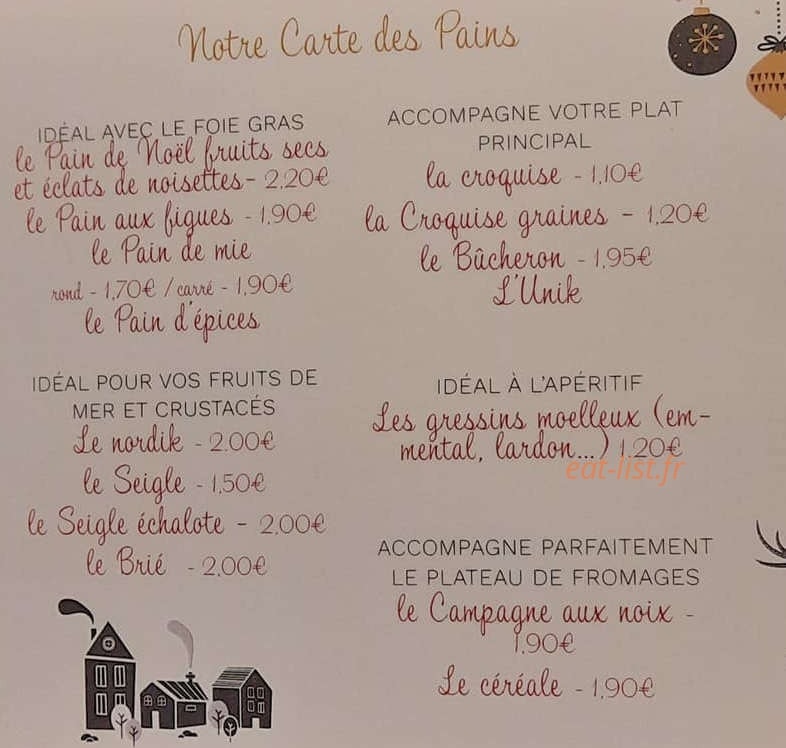 Notre Carte des Pains
IDÉAL AVEC LE FOIE GRAS
le Pain de Noël fruits secs
et éclats de noisettes - 2,20€
le Pain aux figues - 1,90€
le Pain de mie
rond - 1,70€ / carré - 1,90€
le Pain d'épices
IDÉAL POUR VOS FRUITS DE
MER ET CRUSTACÉS
Le nordik - 2.00€
le Seigle - 1,50€
le Seigle échalote - 2,00€
le Brié - 2,00€
ACCOMPAGNE VOTRE PLAT
PRINCIPAL
la croquise - 1,10€
la Croquise graines - 1,20€
le Bûcheron - 1,95€
L'Unik
IDÉAL À L'APÉRITIF
Les gressins moelleux (em-
mental, lardon...) 1.20€
eat-list.fr
ACCOMPAGNE PARFAITEMENT
LE PLATEAU DE FROMAGES
le Campagne aux noix -
1,90€
Le céréale - 1,90€